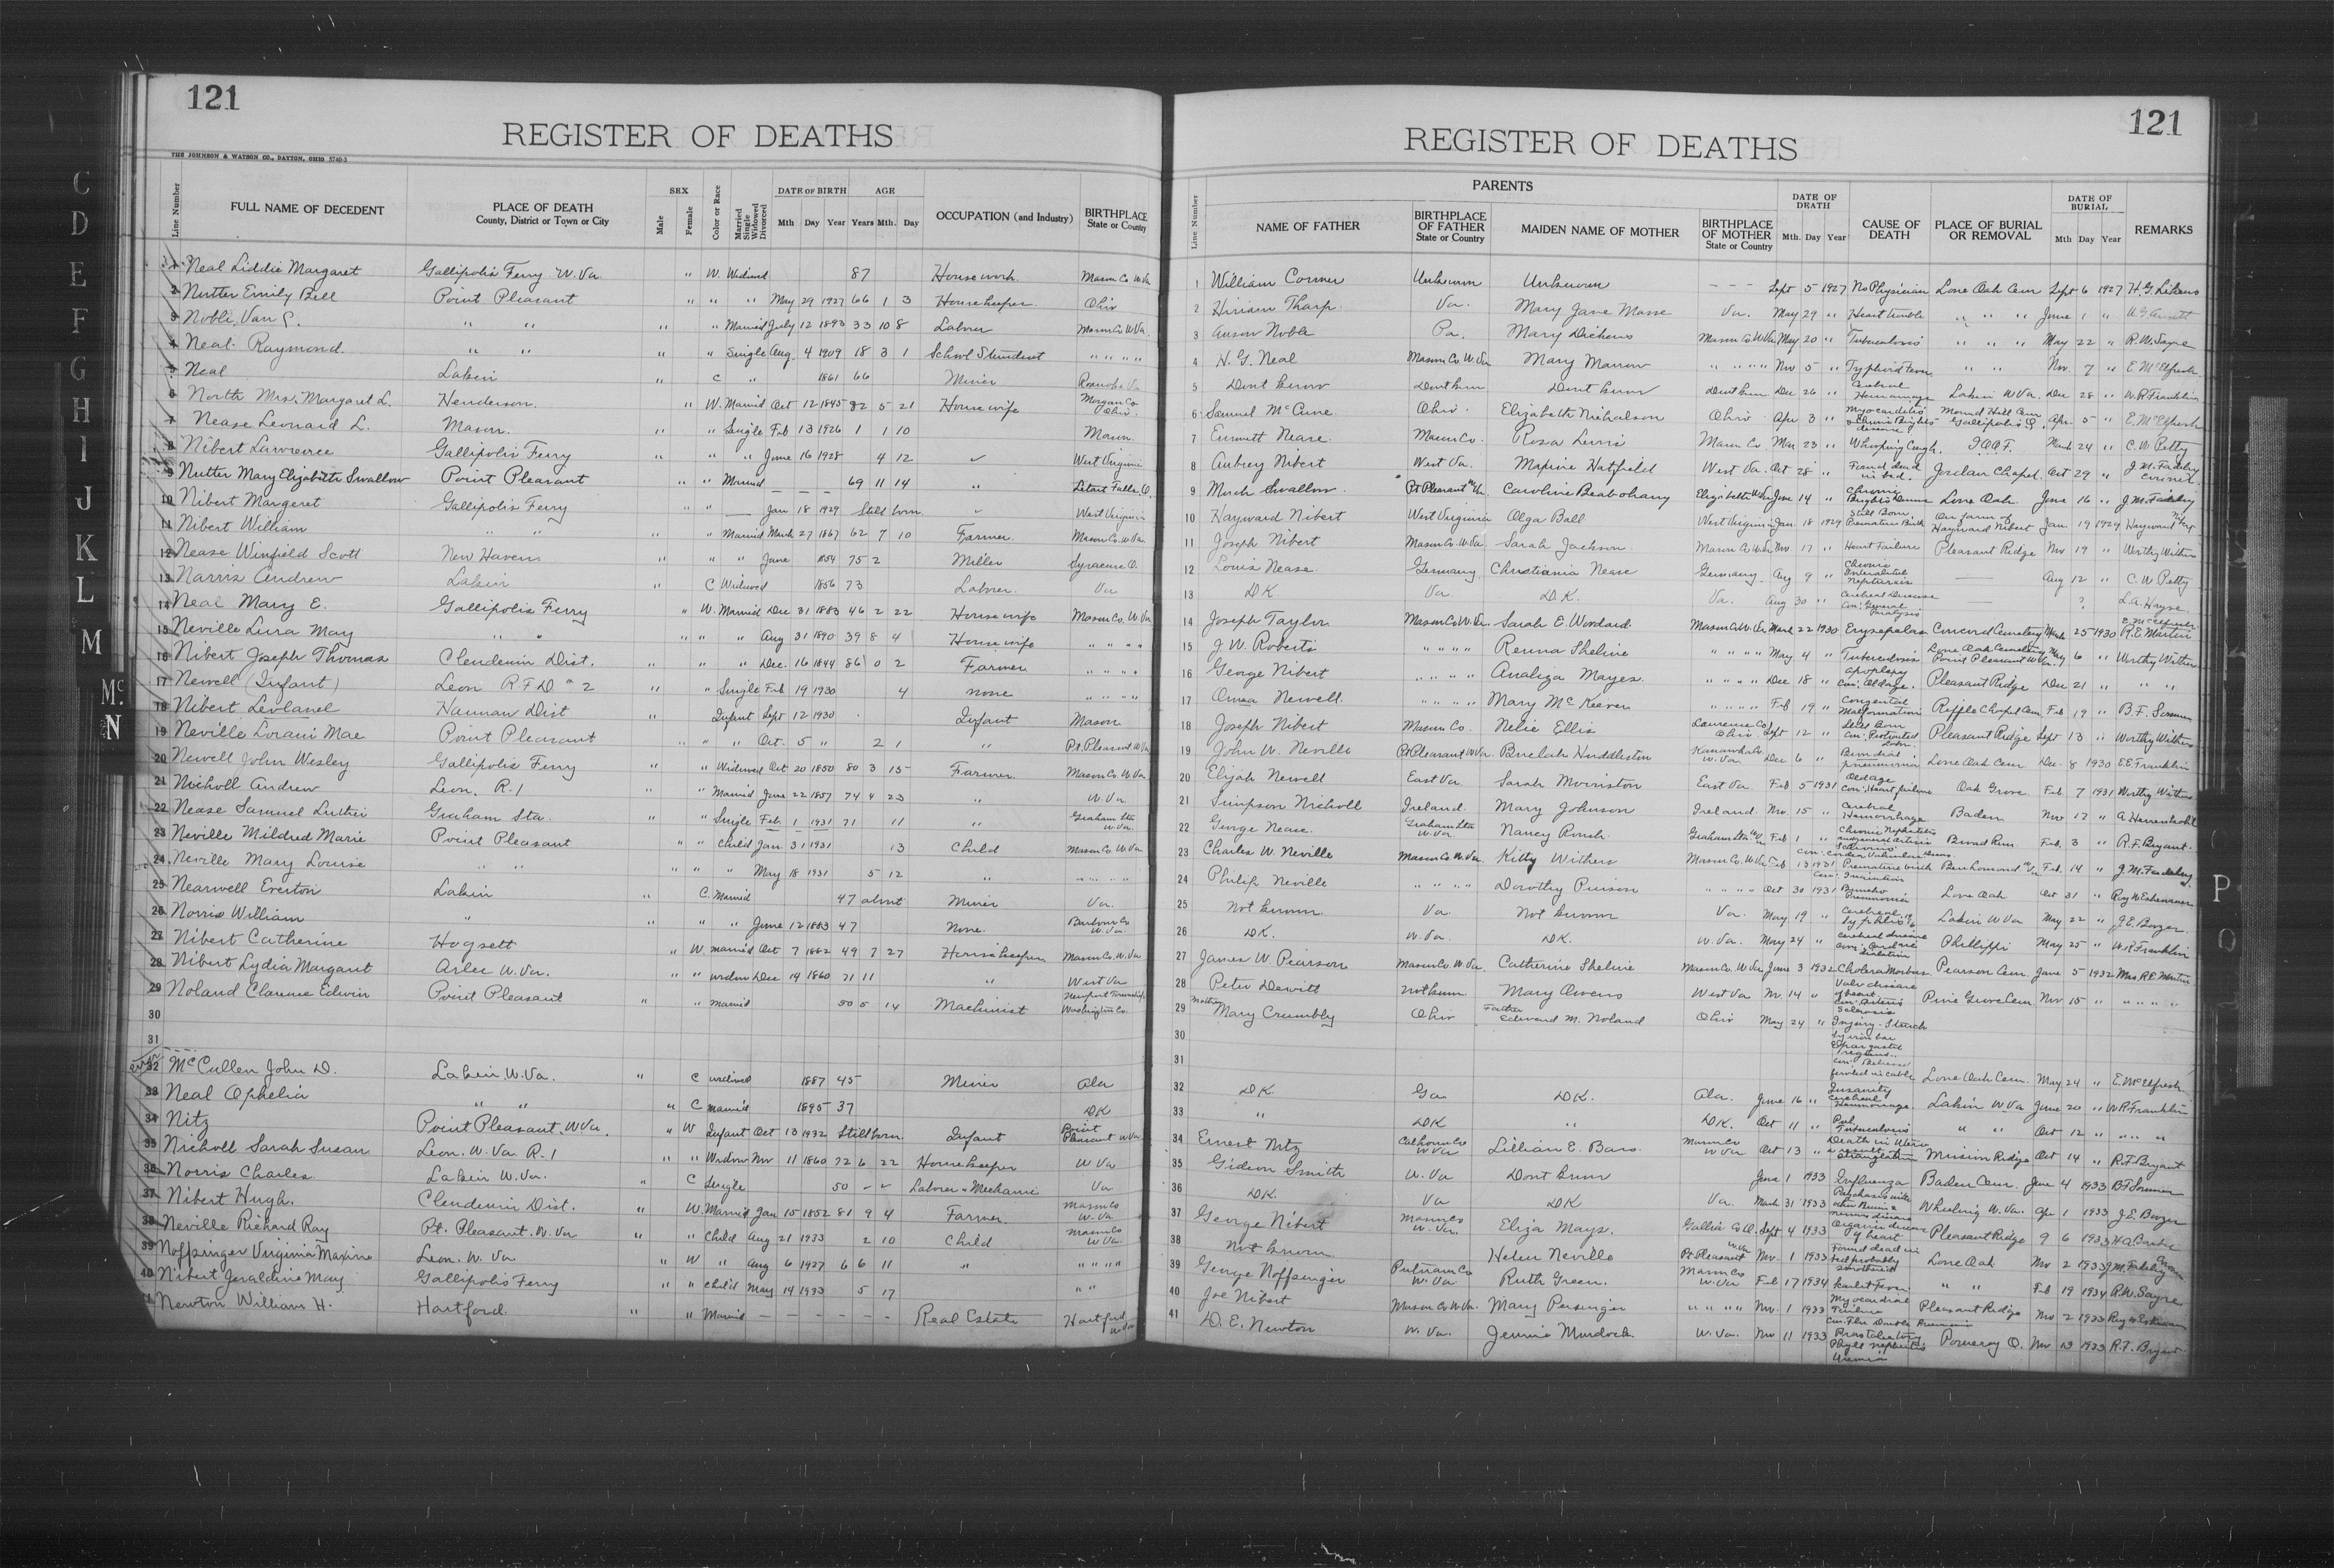 121
REGISTER OF DEATHS
THE JOHNSON & WATSON CO., DAYTON, OHIO 5740-3
Line Number
FULL NAME OF DECEDENT
PLACE OF DEATH
County, District or Town or City
SEX
Male
Female
Color or Race
Married Single Widowed Divorced
DATE OF BIRTH
Mth Day Year
AGE
Years Mth. Day
OCCUPATION (and Industry)
BIRTHPLACE
State or County
1 Neal Liddie Margaret Gallipolis Ferry W. Va. " W. Widowed 87 Housework Mason Co W Va
2 Nutter Emily Bell Point Pleasant " " " May 29 1927 66 1 3 Housekeeper Ohio
3 Noble, Van " " " " Married July 12 1893 33 10 8 Labor Mason Co W Va
4 Neal Raymond. " " " " Single Aug. 4 1909 18 3 1 School Student " " " "
5 Neal Lakin " C " 1861 66 Miner Roanoke Va
6 North Mrs. Margaret L. Henderson. " W. Married Oct 12 1845 82 5 21 Housewife Morgan Co Ohio.
7 Nease Leonard L. Mason. " " Single Feb 13 1926 1 1 10 Mason.
8 Nibert Lawrence Gallipolis Ferry " " " June 16 1928 4 12 West Virginia
9 Nutter Mary Elizabeth Swallow Point Pleasant " " Married — — — 69 11 14 " Letart Falls, O.
10 Nibert Margaret Gallipolis Ferry " " — Jan 18 1929 Still born West Virginia
11 Nibert William " " " Married March 27 1867 62 7 10 Farmer. Mason Co. W. Va
12 Nease Winfield Scott New Haven " " " June 1854 75 2 Miller Syracuse O.
13 Narris Andrew Lakin " C Widowed 1856 73 Laborer Va
14 Neal Mary E. Gallipolis Ferry " W. Married Dec 31 1883 46 2 22 Housewife Mason Co. W Va
15 Neville Lura May " " " " " Aug 31 1890 39 8 4 Housewife " " " "
16 Nibert Joseph Thomas Clendenin Dist. " " " Dec. 16 1844 86 0 2 Farmer " " " "
17 Newell (Infant) Leon R.F.D # 2 " " Single Feb 19 1930 4 none " " " "
18 Nibert Hannan Dist " Infant Sept 12 1930 Infant Mason
19 Neville Mae Point Pleasant " " " Oct. 5 " 2 1 " Pt. Pleasant W Va
20 Newell John Wesley Gallipolis Ferry " " Widowed Oct 20 1850 80 3 15 Farmer. Mason Co. W. Va
21 Nicholl Andrew Leon, R-1 " " Married June 22 1857 74 4 23 " W. Va
22 Nease Samuel Luther Graham Sta. " " Single Feb. 1 1931 71 11 " Graham Sta W. Va.
23 Neville Mildred Marie Point Pleasant " " Child Jan 31 1931 13 Child Mason Co. W Va
24 Neville Mary Louise " " " " " May 18 1931 5 12 " " " " "
25 Everton Lakin " C. Married 47 about Miner Va.
26 Norris William " " " " June 12 1883 47 None. Barbour Co W. Va.
27 Nibert Catherine Hogsett " W. married Oct 7 1882 49 7 27 Housekeeper Mason Co. W. Va
28 Nibert Lydia Margaret Arlee W. Va. " " widow Dec 14 1860 71 11 " West Va
29 Noland Clarence Edwin Point Pleasant " " married 50 5 14 Machinist Newport Township Washington Co.
30
31
32 McCullen John D. Lakin W. Va. " C widowed 1887 45 Miner Ala
33 Neal Ophelia " " " C married 1895 37 DK
34 Nitz Point Pleasant, W. Va. " W Infant Oct 13 1932 Stillborn Infant Point Pleasant W Va
35 Nicholl Sarah Susan Leon. W. Va R. 1 " " Widow Nov 11 1860 72 6 22 Housekeeper W Va
36 Norris Charles Lakin W. Va. " C Single 50 Laborer & Mechanic Va.
37 Nibert Hugh. Clendenin Dist. " W. Married Jan 15 1852 81 9 4 Farmer. Mason Co W. Va
38 Neville Richard Ray Pt. Pleasant, W. Va " " Child Aug 21 1933 2 10 Child Mason Co W Va.
39 Noffsinger Virginia Maxine Leon. W. Va " W " Aug 6 1927 6 6 11 " " " " "
40 Nibert Jeraldine May Gallipolis Ferry " " Child May 14 1933 5 17 " "
41 Newton William H. Hartford. " " Married — — — — — — Real Estate Hartford W Va
121
REGISTER OF DEATHS
Line Number
PARENTS
NAME OF FATHER
BIRTHPLACE OF FATHER
State or Country
MAIDEN NAME OF MOTHER
BIRTHPLACE OF MOTHER
State or Country
DATE OF DEATH
Mth. Day Year
CAUSE OF DEATH
PLACE OF BURIAL OR REMOVAL
DATE OF BURIAL
Mth Day Year
REMARKS
1 William Corner Unknown Unknown - - - Sept 5 1927 No Physician Lone Oak Cem Sept 6 1927
2 Hiriam Tharp. Va. Mary Jane Va. May 29 " Heart trouble " " " June 1 "
3 Anson Noble Pa. Mary Dickens Mason Co W Va May 20 " Tuberculosis " " " May 22 " R. W. Sayre
4 H. G. Neal Mason Co. W. Va Mary " " " " Nov 5 " Typhoid Fever " " Nov. 7 " E McElfresh
5 Dont know Dont know Dont know Dont know Dec 26 " Cerebral Hemorrhage Lakin W Va. Dec 28 " W. R. Franklin
6 Samuel McCune. Ohio. Elizabeth Nicholson Ohio. Apr 3 " Myocarditis & Chronic Brights disease Mound Hill Cem Gallipolis O. Apr. 5 " E. McElfresh
7 Emmett Nease. Mason Co. Rosa Mason Co Mar 23 " Whooping Cough. I.O.O.F. March 24 " C. W. Petty
8 Aubrey Nibert West Va. Maxine Hatfield West Va. Oct 28 " Found dead in bed. Jordan Chapel. Oct 29 " J. M. Coroner.
9 Swallow. Pt Pleasant W Va. Caroline June 14 " Chronic Brights Disease Lone Oak. June 16 " J. M.
10 Hayward Nibert West Virginia Olga Ball West Virginia Jan. 18 1929 Still Born. Premature Birth On farm of Hayward Nibert Jan. 19 1929 Hayward
11 Joseph Nibert Mason Co. W. Va. Sarah Jackson Mason Co W. Va Nov 17 " Heart Failure Pleasant Ridge Nov 19 " Worthy Withers
12 Louis Nease. Germany. Christiania Nease Germany. Aug 9 " Chronic Interstitial — Aug 12 " C. W Petty
13 D.K. Va. D.K. Va. Aug 30 " Cerebral Disease Con: General Paralysis — ? L. A.
14 Joseph Taylor Mason Co W. Va. Sarah E. Woodard Mason Co W. Va. March 22 1930 Erysepelas Concord Cemetery March 25 1930 E McElfresh
15 J. W. Roberts " " " " Renna Sheline " " " " May 4 " Tuberculosis Lone Oak Cemetery Point Pleasant W Va. May 6 " R. E. Martin
16 George Nibert " " " " Analiza Mayes. " " " " Dec 18 " Apoplexy Con: Old age. Pleasant Ridge Dec 21 " Worthy Withers
17 Newell. " " " " Mary McKeever " " " " Feb 19 " Congenital Malformation Riffle Chapel Cem Feb 19 " B. F. Sommer
18 Joseph Nibert Mason Co. Nelie Ellis Lawrence Co Ohio. Sept 12 " Still Born con: Protracted Labor. Pleasant Ridge Sept 13 " Worthy Withers
19 John W. Neville Pt Pleasant W Va. Huddleston Kanawha Co. W. Va Dec 6 " Bronchial pneumonia Lone Oak Cem Dec. 8 1930 E. E. Franklin
20 Elijah Newell East Va. Sarah Morriston East Va. Feb 5 1931 Old age Con: Heart failure Oak Grove. Feb. 7 1931 Worthy Withers
21 Simpson Nicholl Ireland. Mary Johnson Ireland. Nov. 15 " Cerebral Hemorrhage Baden Nov 17 "
22 George Nease. Graham Sta W. Va. Nancy Roush. Graham Sta W Va Feb 1 " Chronic Broad Run. Feb. 3 " R. F. Bryant.
23 Charles W. Neville Mason Co. W. Va. Kitty Withers Mason Co. W. Va Feb 13 1931 Premature birth Con: Inanition Ben Lomond W Va Feb. 14 " J. M.
24 Philip Neville " " " " Dorothy " " " " Oct 30 1931 Broncho Pneumonia Lone Oak Oct 31 "
25 Not known. Va. Not known Va. May 19 " Cerebral Syphilis Lakin W Va May 22 " J. E.
26 DK. W. Va. DK. W. Va. May 24 " Cerebral disease Con: Cardiac dilatation Phillippi May 25 " W. R Franklin
27 James W. Pearson Mason Co. W. Va. Catherine Sheline Mason Co. W Va June 3 1932 Cholera Morbus Pearson Cem. June 5 1932 Mrs. R.E. Martin
28 Peter Dewitt not known. Mary Owens West Va Nov. 14 " Valv disease of heart. Con: Arterio Sclerosis Pine Grove Cem. Nov 15 " " " " "
29 Mother Mary Crumbly Ohio Father Edward M. Noland Ohio May 24 " Injury- Struck by iron bar Lone Oak Cem. May 24 " E. McElfresh
30
31
32 D.K. Ga D.K. Ala. June 16 " Insanity Cerebral Hemorrhage. Lakin W Va June 20 " W R Franklin
33 " DK " D.K. Oct 11 " Pul. Tuberculosis " " Oct 12 " " " "
34 Ernest Nitz Calhoun Co W Va Lillian E. Bass Mason Co W Va Oct 13 " Death in Utero a result of Strangulation Mission Ridge Oct 14 " R. F. Bryant
35 Gideon Smith W. Va Dont know June 1 1933 Influenza Baden Cem. June 4 1933 B F Sommer
36 DK. Va DK Va. March 31 1933 Wheeling W. Va. Apr 1 1933 J. E.
37 George Nibert Mason Co W. Va. Eliza Mays. Gallia Co O. Sept 4 1933 Organic disease of heart Pleasant Ridge 9 6 1933
38 Not known Helen Neville Pt Pleasant W Va Nov. 1 1933 Found dead in bed probably smothered Lone Oak Nov 2 1933 J. M.
39 George Noffsinger Putnam Co W. Va Ruth Green. Mason Co W. Va Feb 17 1934 Scarlet Fever " " Feb 19 1934 R. W. Sayre
40 Joe Nibert Mason Co W. Va. Mary Persinger " " " " Nov. 1 1933 Myocardial Failure Con. Flu Double Pneumonia Pleasant Ridge Nov 2 1933
41 D. E. Newton W. Va. Jennie Murdock W. Va. Nov 11 1933 Uremia Pomeroy O. Nov 13 1933 R. F. Bryant
C
D
E
F
G
H
I
J
K
L
M
Mc.
N
P
Q